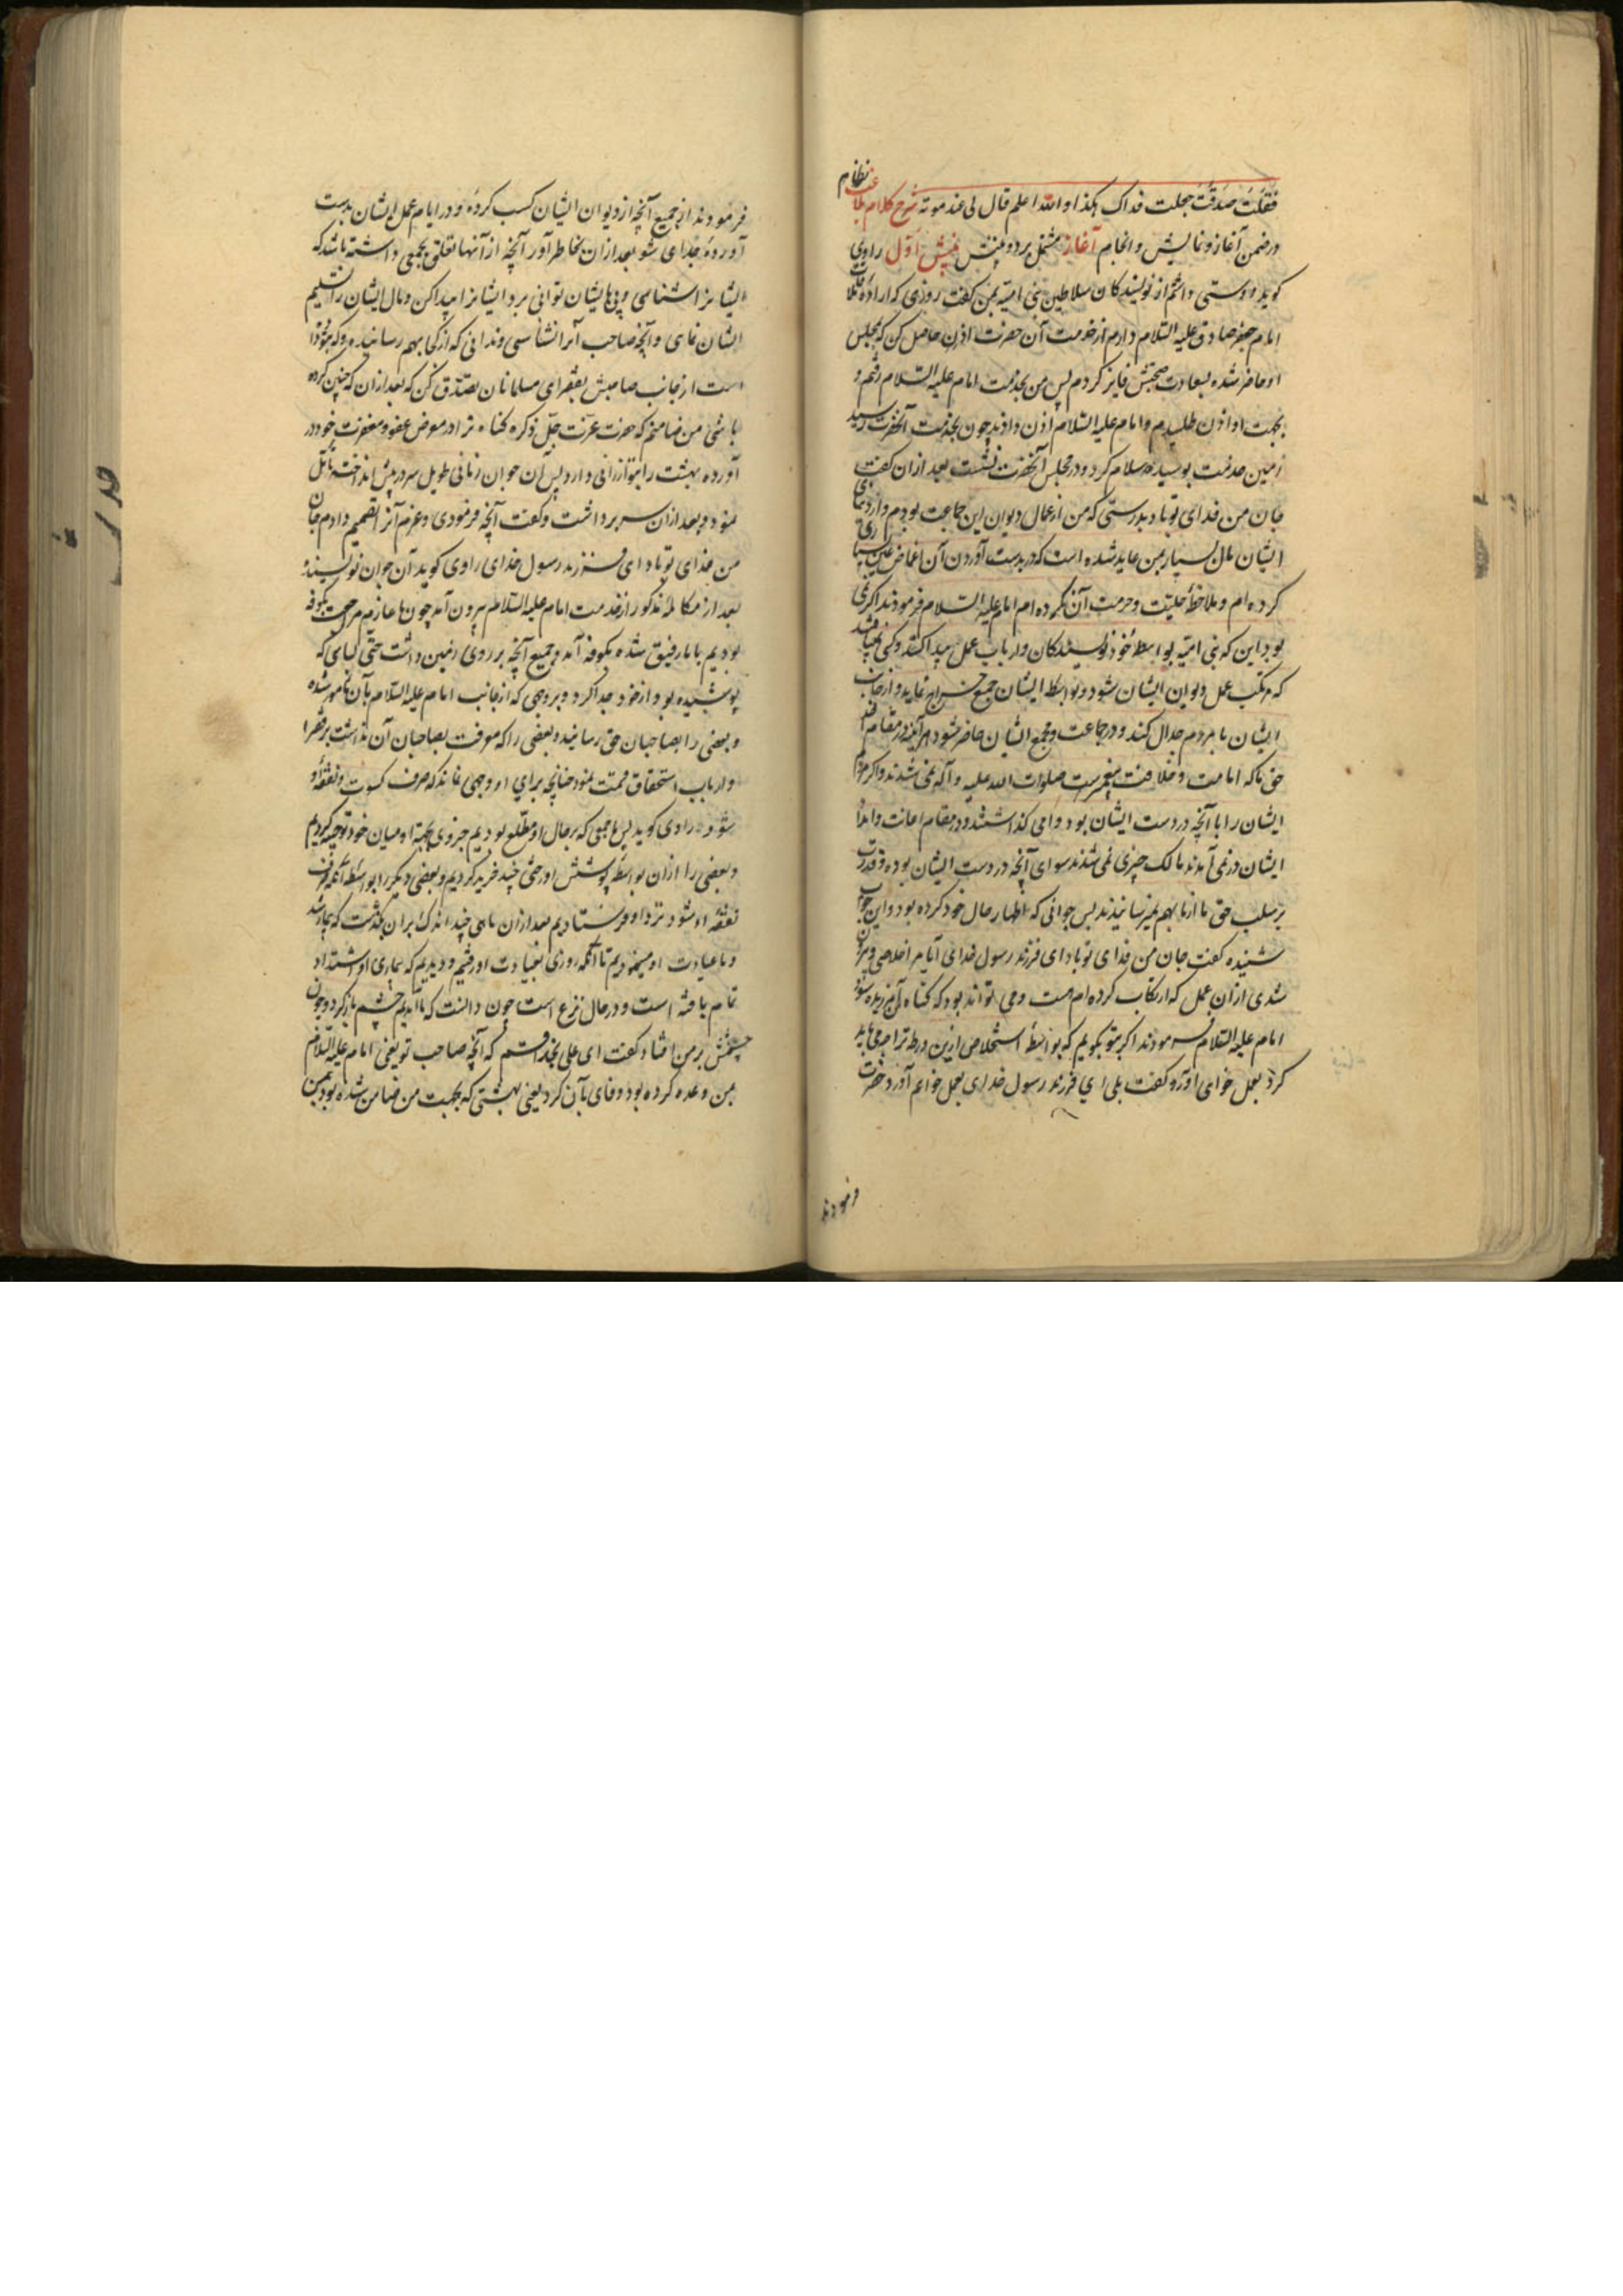 فقلت صدقت جعلت فداک هکذا والله اعلم قال لی عند موته شرح کلام بلاغت نظام
در ضمن آغاز و نمایش و انجام آغاز مشتمل بر دو بینش بینش اول راوی
کوید دوستی داشتم از نویسندکان سلاطین بنی امیه بمن کفت روزی که اراده ملاقات
امام جعفر صادق علیه السلام دارم از خدمت آن حضرت اذن حاصل کن که بمجلس
او حاضر شده بسعادت صحبتش فایز کردم پس من بخدمت امام علیه السلام رفتم و
بجهت او اذن طلبیدم و امام علیه السلام اذن دادند چون بخدمت آنحضرت رسید
زمین خدمت بوسیده سلام کرد و در مجلس آنحضرت نشست بعد ازان کفت
جان من فدای تو باد بدرستی که من از عمال دیوان این جماعت بودم و از دنیای
ایشان مال بسیار بمن عاید شده است که در بدست آوردن آن اغماض عین بسیاری
کرده ام و ملاحظه حلیت و حرمت آن نکرده ام امام علیه السلام فرمودند اکر نمی
بود این که بنی امیه بواسطه خود نویسندکان و ارباب عمل پیدا کنند و کسی نمیافتند
که مرتکب عمل دیوان ایشان شود و بواسطه ایشان جمع خراج نماید و از جانب
ایشان با مردم جدال کند و در جماعت و مجمع ایشان حاضر شود هر آینه در مقام اخذ
حق ما که امامت و خلافت پیغمبرست صلوات الله علیه و آله نمی شدند و اکر مردم
ایشان را با آنچه در دست ایشان بود وا می کذاشتند و در مقام اعانت و امداد
ایشان در نمی آمدند مالک چیزی نمی شدند سوای آنچه در دست ایشان بوده و قدرت
بر سلب حق ما از ما بهم نمیرسانیدند پس جوانی که اظهار حال خود کرده بود و این جواب
شنیده کفت جان من فدای تو باد ای فرزند رسول خدای آیا مرا خلاصی و بیرون
شدی ازان عمل که ارتکاب کرده ام هست و می تواند بود که کناه من آمرزیده شود
امام علیه السلام فرمودند اکر بتو بکویم که بواسطه استخلاص ازین ورطه ترا چه می باید
کرد بعمل خواهی آورد و کفت بلی ای فرزند رسول خدای بعمل خواهم آورد حضرت
فرمودند
فرمودند از جمیع آنچه از دیوان ایشان کسب کردهٔ و در ایام عمل ایشان بدست
آوردهٔ جدای شو بعد ازان بخاطر آور آنچه از آنها تعلق بجمعی داشته باشد که
ایشانرا شناسی و پی بایشان توانی برد ایشانرا پیدا کن و مال ایشان را تسلیم
ایشان نمای و آنچه صاحب آنرا نشناسی و ندانی که از کجا بهم رسانیده و که بتو داده
است از جانب صاحبش بفقرای مسلمانان تصدق کن که بعد ازان که چنین کرده
باشی من ضامنم که حضرت عزت جل ذکره کناه ترا در معرض عفو و مغفرت خود در
آورده بهشت را بتو ارزانی دارد پس آن جوان زمانی طویل سر در پیش انداخته تأمل
نمود و بعد ازان سر برداشت و کفت آنچه فرمودی و عزم آنرا تصمیم دادم جان
من فدای تو باد ای فرزند رسول خدای راوی کوید آن جوان نویسنده
بعد از مکالمهٔ مذکور از خدمت امام علیه السلام بیرون آمد چون ما عازم مراجعت بکوفه
بودیم با ما رفیق شده بکوفه آمد و جمیع آنچه بر روی زمین داشت حتی لباسی که
پوشیده بود از خود جدا کرد و بروجهی که از جانب امام علیه السلام بآن مأمور شده
و بعضی را بصاحبان حق رسانید و بعضی را که معرفت بصاحبان آن نداشت بر فقرا
و ارباب استحقاق قسمت نمود چنانچه برای او وجهی نماند که صرف کسوت و نفقه او
شود راوی کوید پس ما جمعی که بر حال او مطلع بودیم جزوی بجهة او میان خود توجیه کردیم
و بعضی را ازان بواسطه پوشش او رختی چند خرید کردیم و بعضی دیکر را بواسطه آنکه صرف
نفقه او شود نزد او فرستادیم بعد ازان ماهی چند اندک بران بکذشت که بیمار شد
و ما عیادت او مینمودیم تا آنکه روزی بعیادت او رفتیم و دیدیم که بیماری او اشتداد
تمام یافته است و در حال نزع است چون دانست که ما آمدیم چشم باز کرد و چون
چشمش بر من افتاد کفت ای علی بخدا قسم که آنچه صاحب تو یعنی امام علیه السلام
بمن وعده کرده بود وفای بآن کرد یعنی بهشتی که بجهت من ضامن شده بود بمن